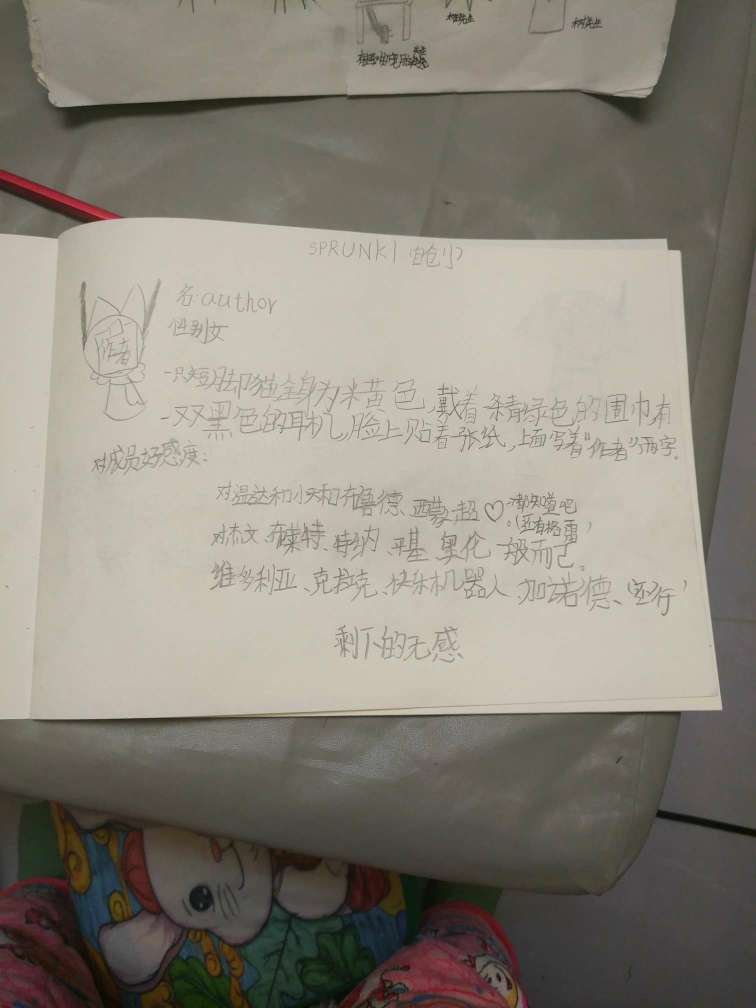 树先生
树先生
SPRUNKI
名:author
性别女
作者
一只短脚猫全身为米黄色,戴着一条青绿色的围巾有
一双黑色的耳机,脸上贴着一张纸,上面写着"作者"两字。
对成员好感度:
对温达和小天和布鲁德、西蒙超♡都知道吧
(还有格雷)
对杰文、布莱特、特纳、平基、奥伦一般而已。
维多利亚、克拉克、快乐机器人、加诺德、(还行)
剩下的无感